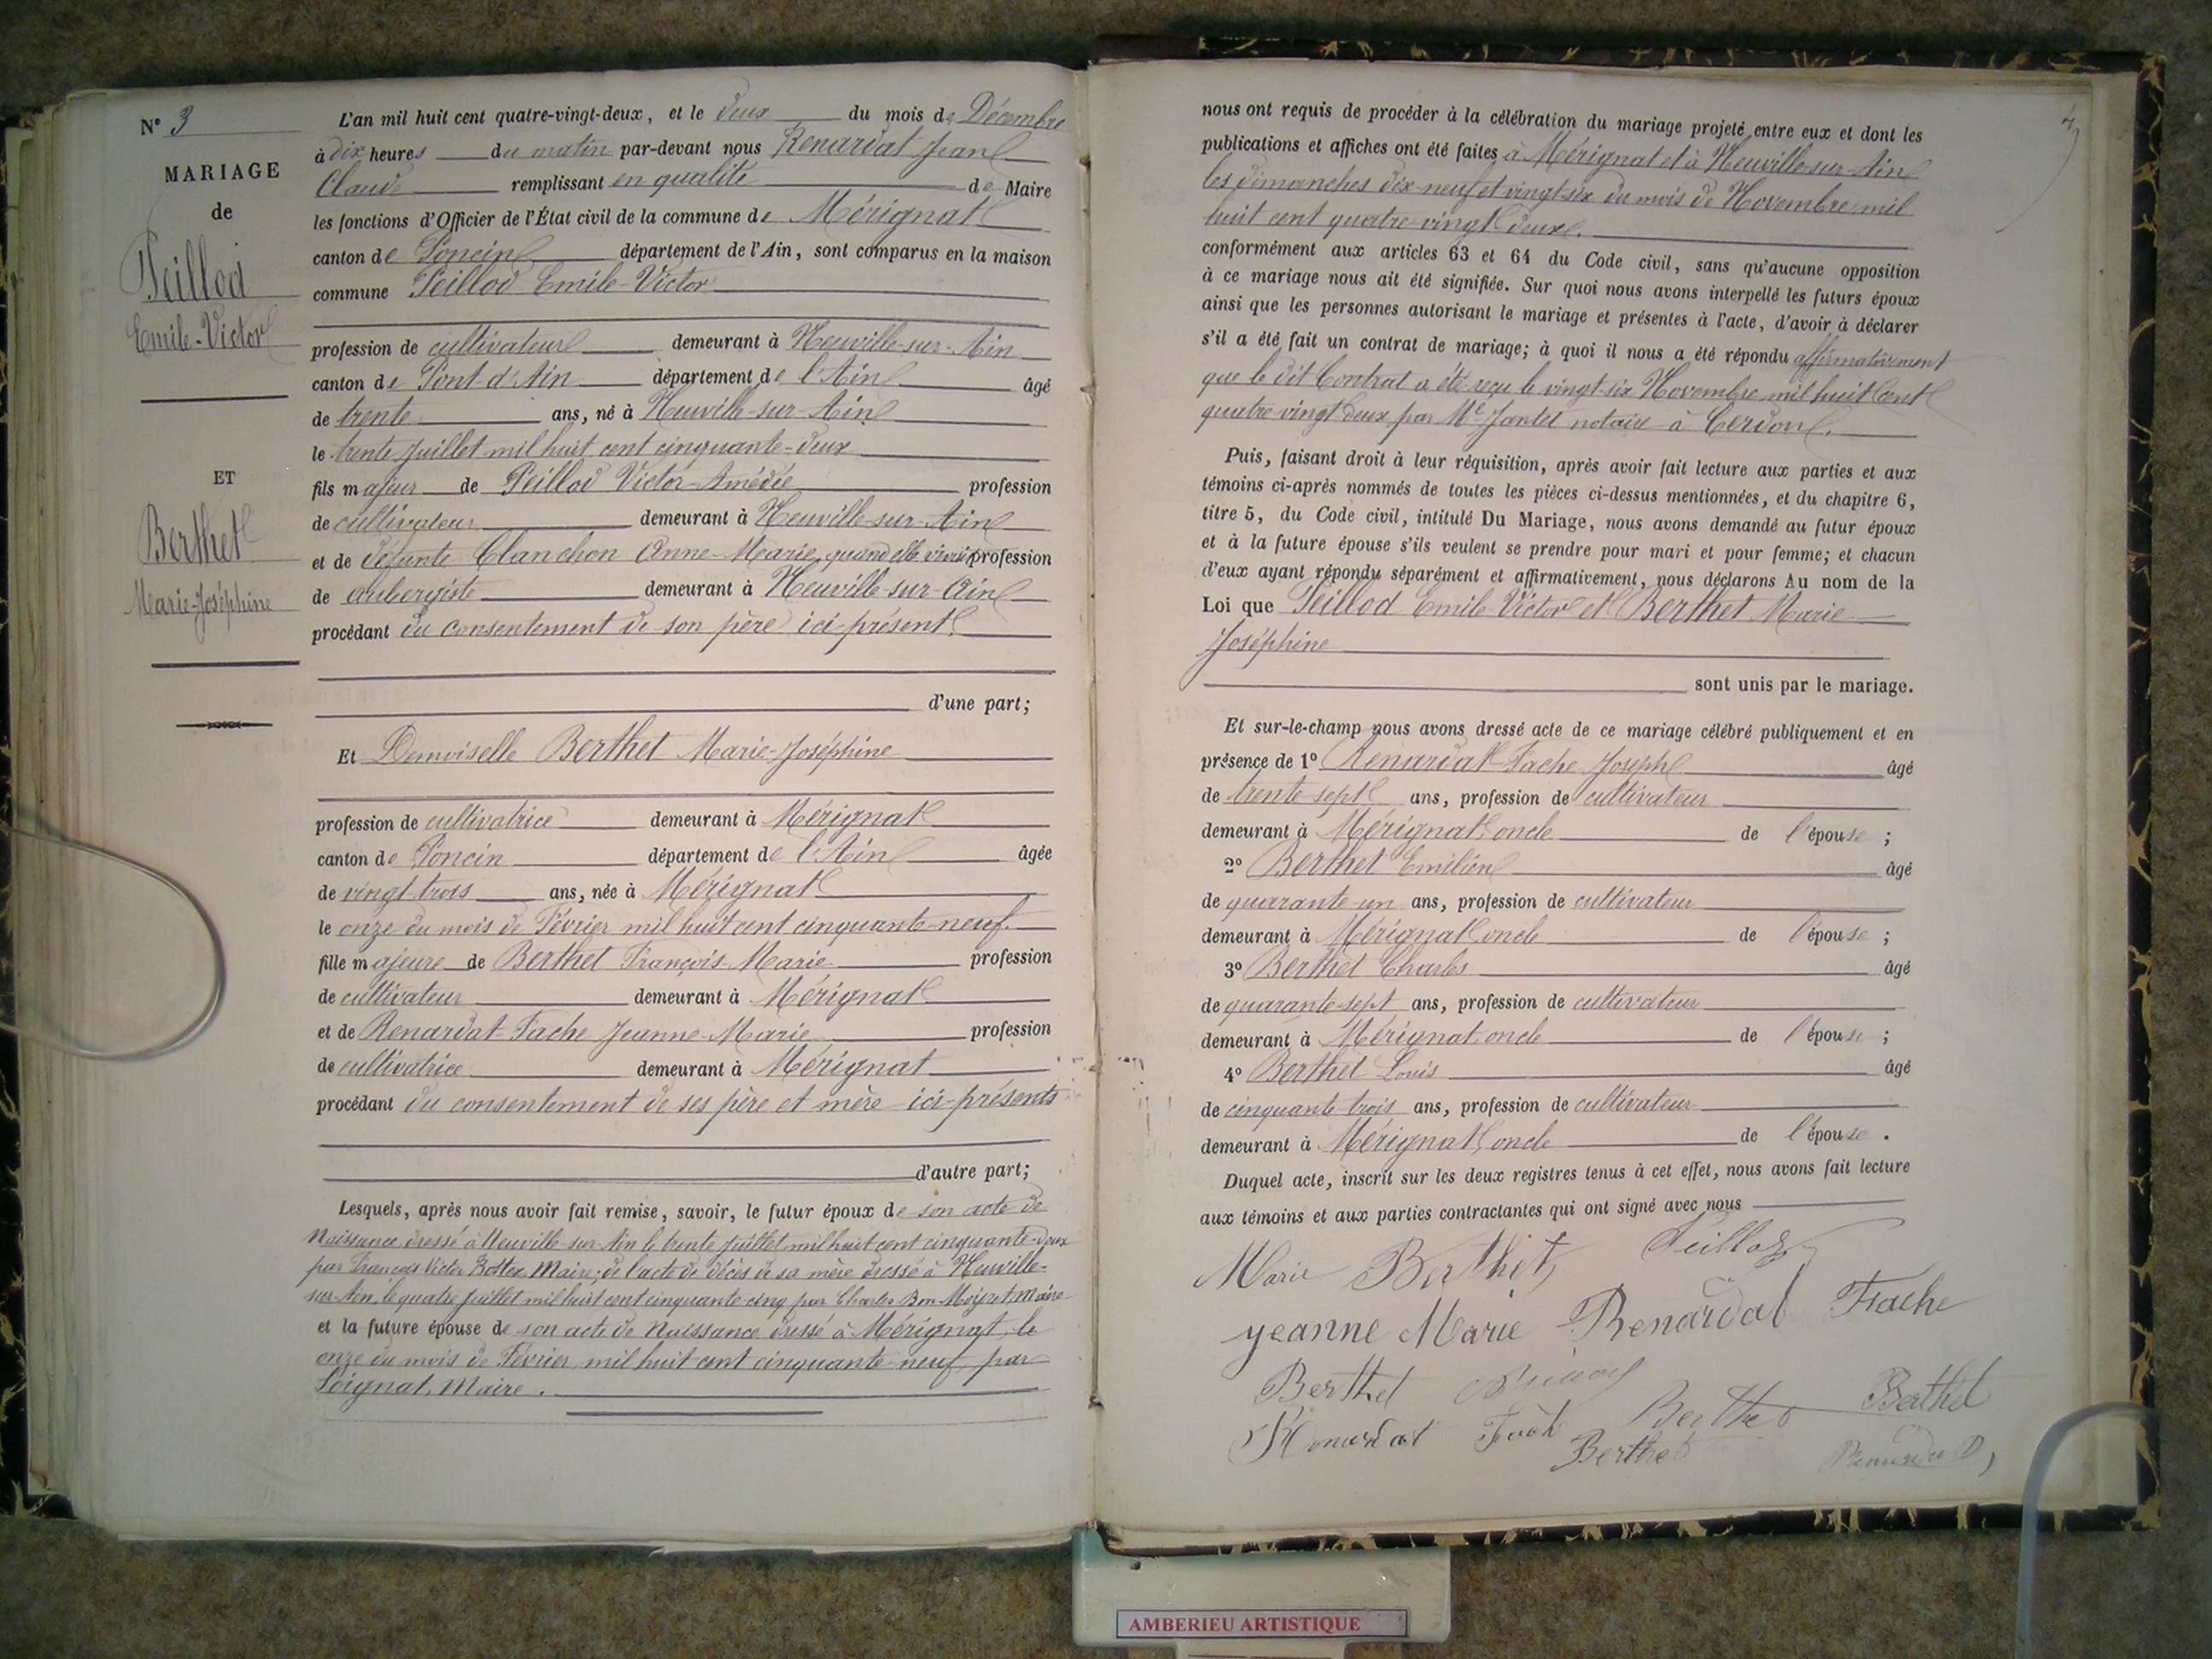 N° 3
MARIAGE
de
Peillod
Emile-Victor
ET
Berthet
Marie-Joséphine
L'an mil huit cent quatre-vingt-deux, et le deux du mois de Décembre
à dix heures du matin par-devant nous Renardat Jean
Claude remplissant en qualité de Maire
les fonctions d'Officier de l'État civil de la commune de Mérignat
canton de Poncin département de l'Ain, sont comparus en la maison
commune Peillod Emile-Victor
profession de cultivateur demeurant à Neuville-sur-Ain
canton de Pont-d'Ain département de l'Ain âgé
de trente ans, né à Neuville-sur-Ain
le trente juillet mil huit cent cinquante-deux
fils majeur de Peillod Victor-Amédée profession
de cultivateur demeurant à Neuville-sur-Ain
et de défunte Clanchon Anne-Marie, quand elle vivait profession
de aubergiste demeurant à Neuville-sur-Ain
procédant du consentement de son père ici-présent
d'une part;
Et Demoiselle Berthet Marie-Joséphine
profession de cultivatrice demeurant à Mérignat
canton de Poncin département de l'Ain âgée
de vingt-trois ans, née à Mérignat
le onze du mois de Février mil huit cent cinquante-neuf.
fille majeure de Berthet François-Marie profession
de cultivateur demeurant à Mérignat
et de Renardat-Fache Jeanne-Marie profession
de cultivatrice demeurant à Mérignat
procédant du consentement de ses père et mère ici-présents
d'autre part;
Lesquels, après nous avoir fait remise, savoir, le futur époux de son acte de
Naissance dressé à Neuville-sur-Ain le trente juillet mil huit cent cinquante-deux
par François-Victor Bottex, Maire; de l'acte de décès de sa mère dressé à Neuville-
sur-Ain, le quatre juillet mil huit cent cinquante-cinq par Charles Bon Maire
et la future épouse de son acte de Naissance dressé à Mérignat, le
onze du mois de Février mil huit cent cinquante-neuf, par
Poignat, Maire.
4
nous ont requis de procéder à la célébration du mariage projeté entre eux et dont les
publications et affiches ont été faites à Mérignat et à Neuville-sur-Ain
les dimanches dix-neuf et vingt-six du mois de Novembre mil
huit cent quatre-vingt-deux.
conformément aux articles 63 et 64 du Code civil, sans qu'aucune opposition
à ce mariage nous ait été signifiée. Sur quoi nous avons interpellé les futurs époux
ainsi que les personnes autorisant le mariage et présentes à l'acte, d'avoir à déclarer
s'il a été fait un contrat de mariage; à quoi il nous a été répondu affirmativement
que le dit Contrat a été reçu le vingt-six Novembre mil huit cent
quatre-vingt-deux par Me Jantet notaire à Cerdon.
Puis, faisant droit à leur réquisition, après avoir fait lecture aux parties et aux
témoins ci-après nommés de toutes les pièces ci-dessus mentionnées, et du chapitre 6,
titre 5, du Code civil, intitulé Du Mariage, nous avons demandé au futur époux
et à la future épouse s'ils veulent se prendre pour mari et pour femme; et chacun
d'eux ayant répondu séparément et affirmativement, nous déclarons Au nom de la
Loi que Peillod Emile-Victor et Berthet Marie
Joséphine
sont unis par le mariage.
Et sur-le-champ nous avons dressé acte de ce mariage célébré publiquement et en
présence de 1° Renardat-Fache Joseph âgé
de trente-sept ans, profession de cultivateur
demeurant à Mérignat oncle de l'épouse ;
2° Berthet Emilien âgé
de quarante-un ans, profession de cultivateur
demeurant à Mérignat, oncle de l'épouse ;
3° Berthet Charles âgé
de quarante-sept ans, profession de cultivateur
demeurant à Mérignat oncle de l'épouse ;
4° Berthet Louis âgé
de cinquante-trois ans, profession de cultivateur
demeurant à Mérignat, oncle de l'épouse .
Duquel acte, inscrit sur les deux registres tenus à cet effet, nous avons fait lecture
aux témoins et aux parties contractantes qui ont signé avec nous
Marie Berthet Peillod
Jeanne Marie Renardat Fache
Berthet
Renardat Berthet Berthet
Berthet
AMBERIEU ARTISTIQUE